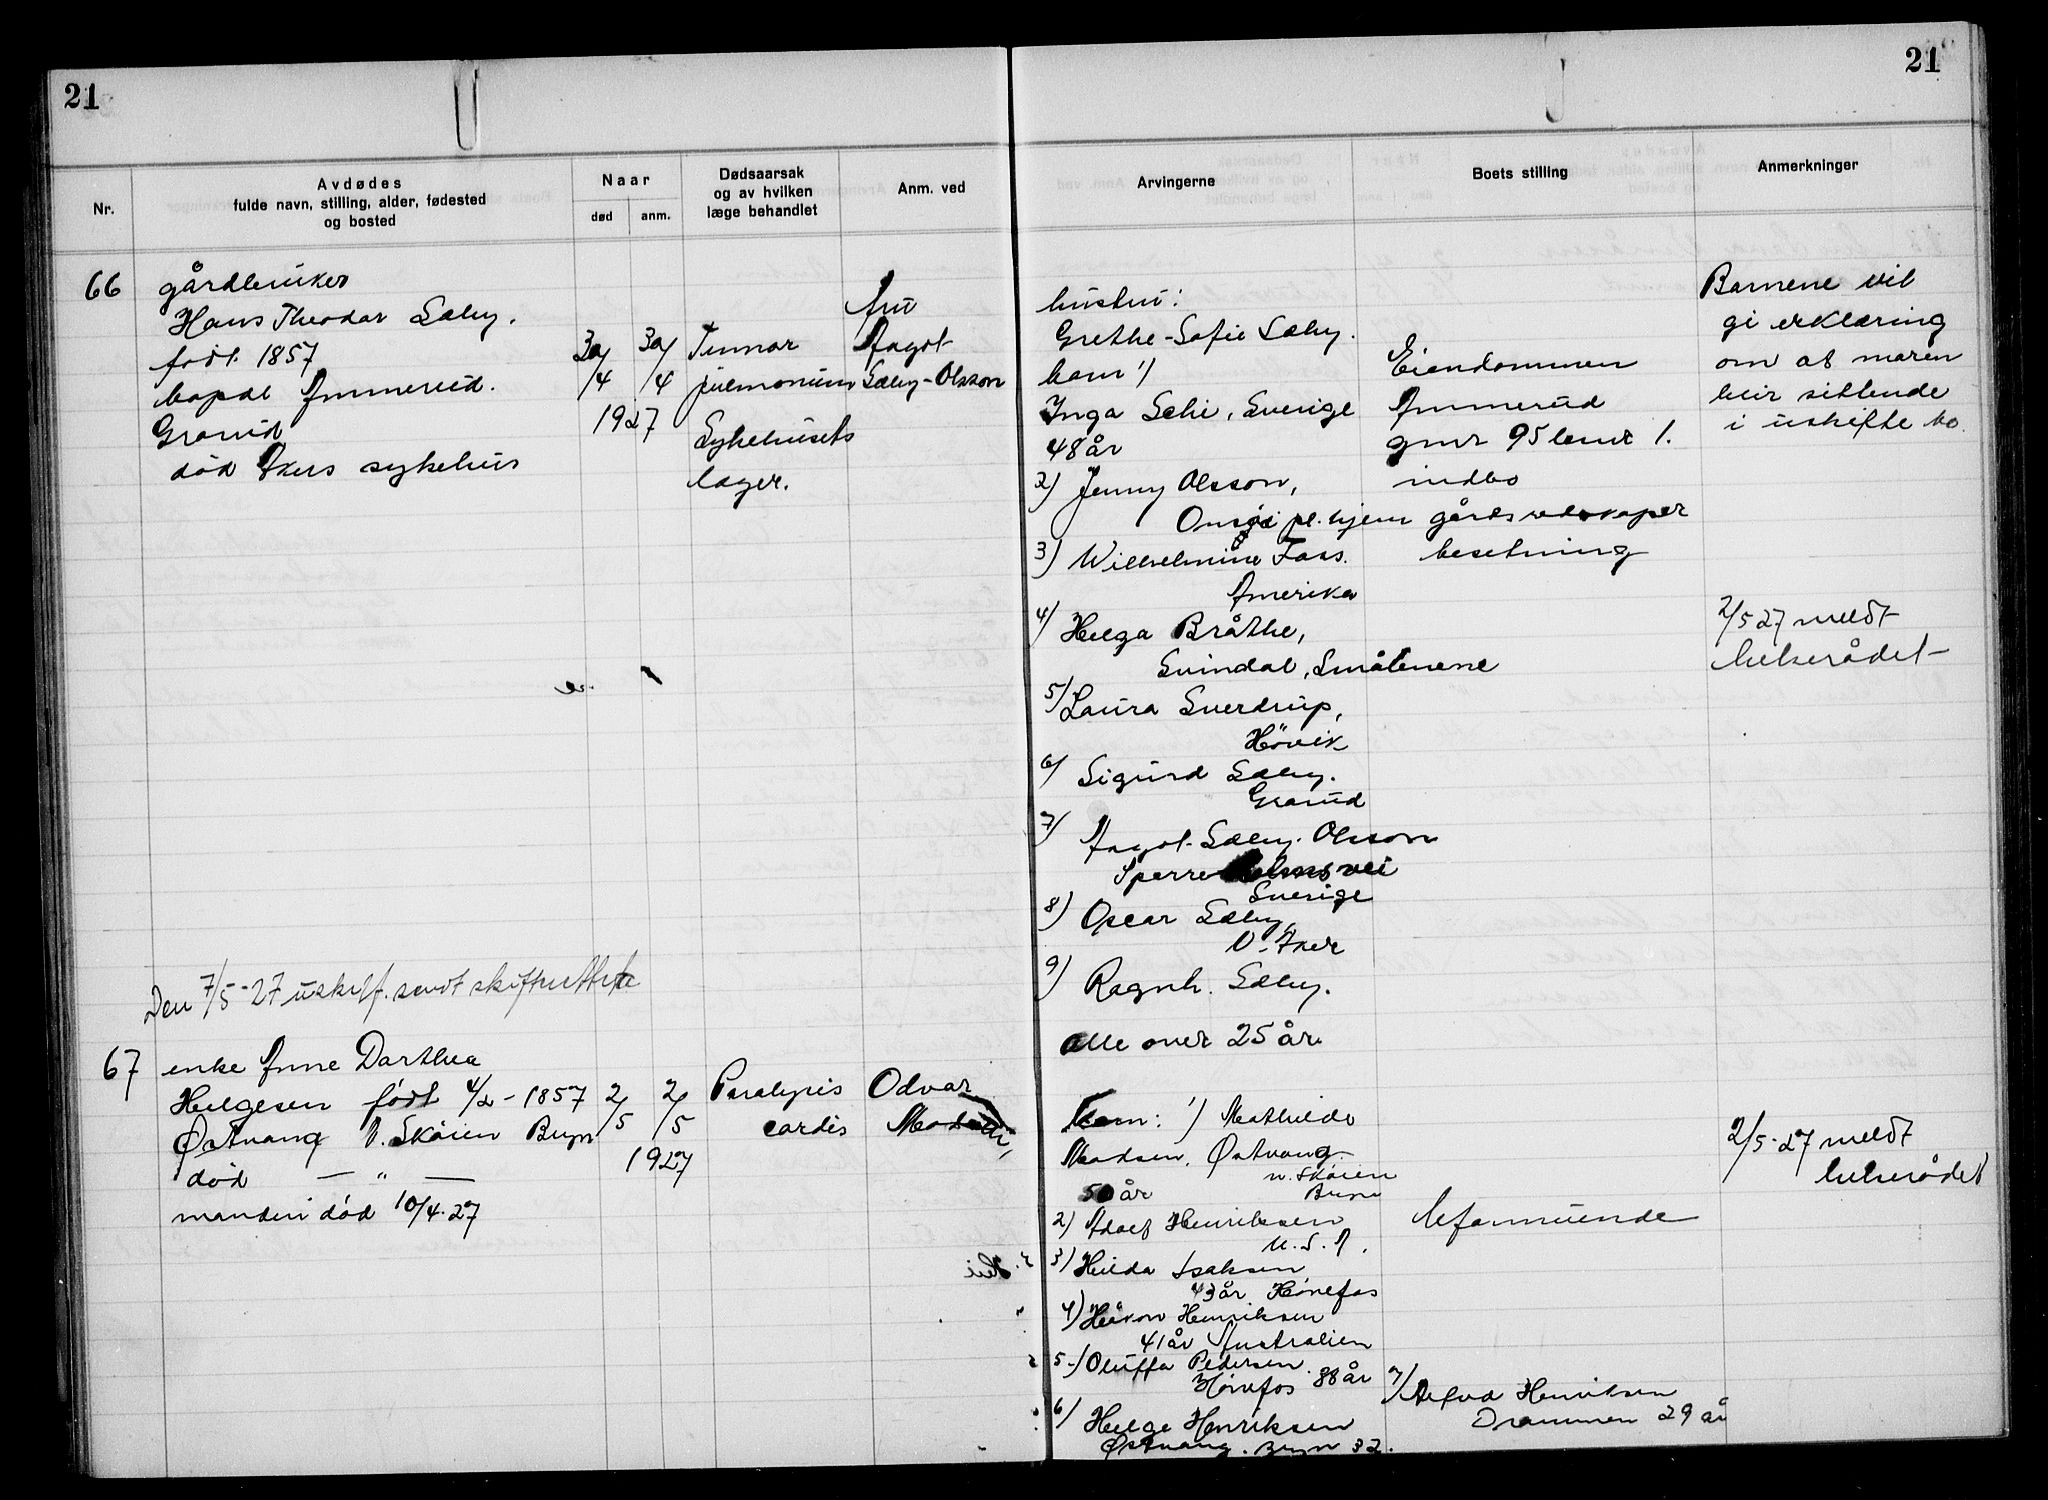 21
21
Nr.
Avdødes
fulde navn, stilling, alder, fødested
og bosted
Naar
død
anm.
Dødsaarsak
og av hvilken
læge behandlet
Anm. ved
Arvingerne
Boets stilling
Anmerkninger
66
gårdbruker
Hans Theodor Sæby.
født 1857
bopæl Ammerud.
Grorud
død Akers sykehus
30/4
30/4
1927
Tumor
pulmonum
Sykehusets
læger.
fru
Aagot
Sæby-Olsson
hustru:
Grethe-Sofie Sæby.
barn 1)
Inga Schi, Sverige
48 år
2) Jenny Olsson,
Onsøi pl.hjem
3) Wilhelmine Fass.
Amerika
4) Helga Bråthe,
Svindal, Småleneene
5) Laura Sverdrup,
Hövik
6) Sigurd Sæby.
Grorud
7) Aagot Sæby-Olsson
Sperre vei
Sverige
8) Oscar Sæby,
V. Aker
9) Ragnh. Sæby.
alle over 25 år
Eiendommen
Ammerud
gnr 95 bnr 1.
indbo
gårdsredskaper
besetning
Barnene vil
gi erklæring
om at moren
blir sittende
i uskifte bo.
2/5 27 meldt
helserådet
Den 7/5-27 uskift. sendt skifteretten
67
enke Anne Dorthea
Helgesen født 4/2-1857
Østvang V. Skøien Bryn
død — " —
manden død 10/4.27
2/5
2/5
1927
Paralysis
cordis
Odvar
Madsen
barn: 1) Mathilde
Madsen, Østvang
v. Skøien
Bryn
50 år
2) Adolf Henriksen
U.S.A.
3) Hilda Isaksen
43 år Hönefos
4) Håkon Henriksen
41 år Australien
5) Oluffa Pedersen
Hönefos 38 år
6) Helge Henriksen
Østvang. Bryn 32.
7) Alfred Henriksen
Drammen 29 år
uformuende
2/5-27 meldt
helserådet